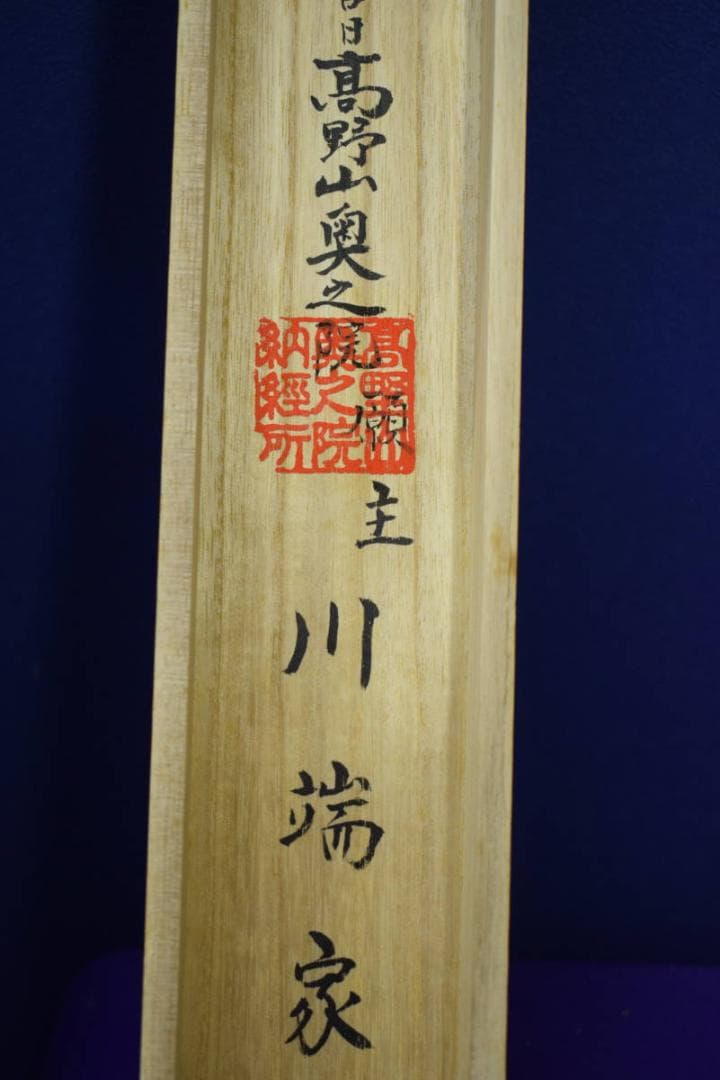 日髙野山奥之院
願主
川端家
髙野山
奥之院
納經所